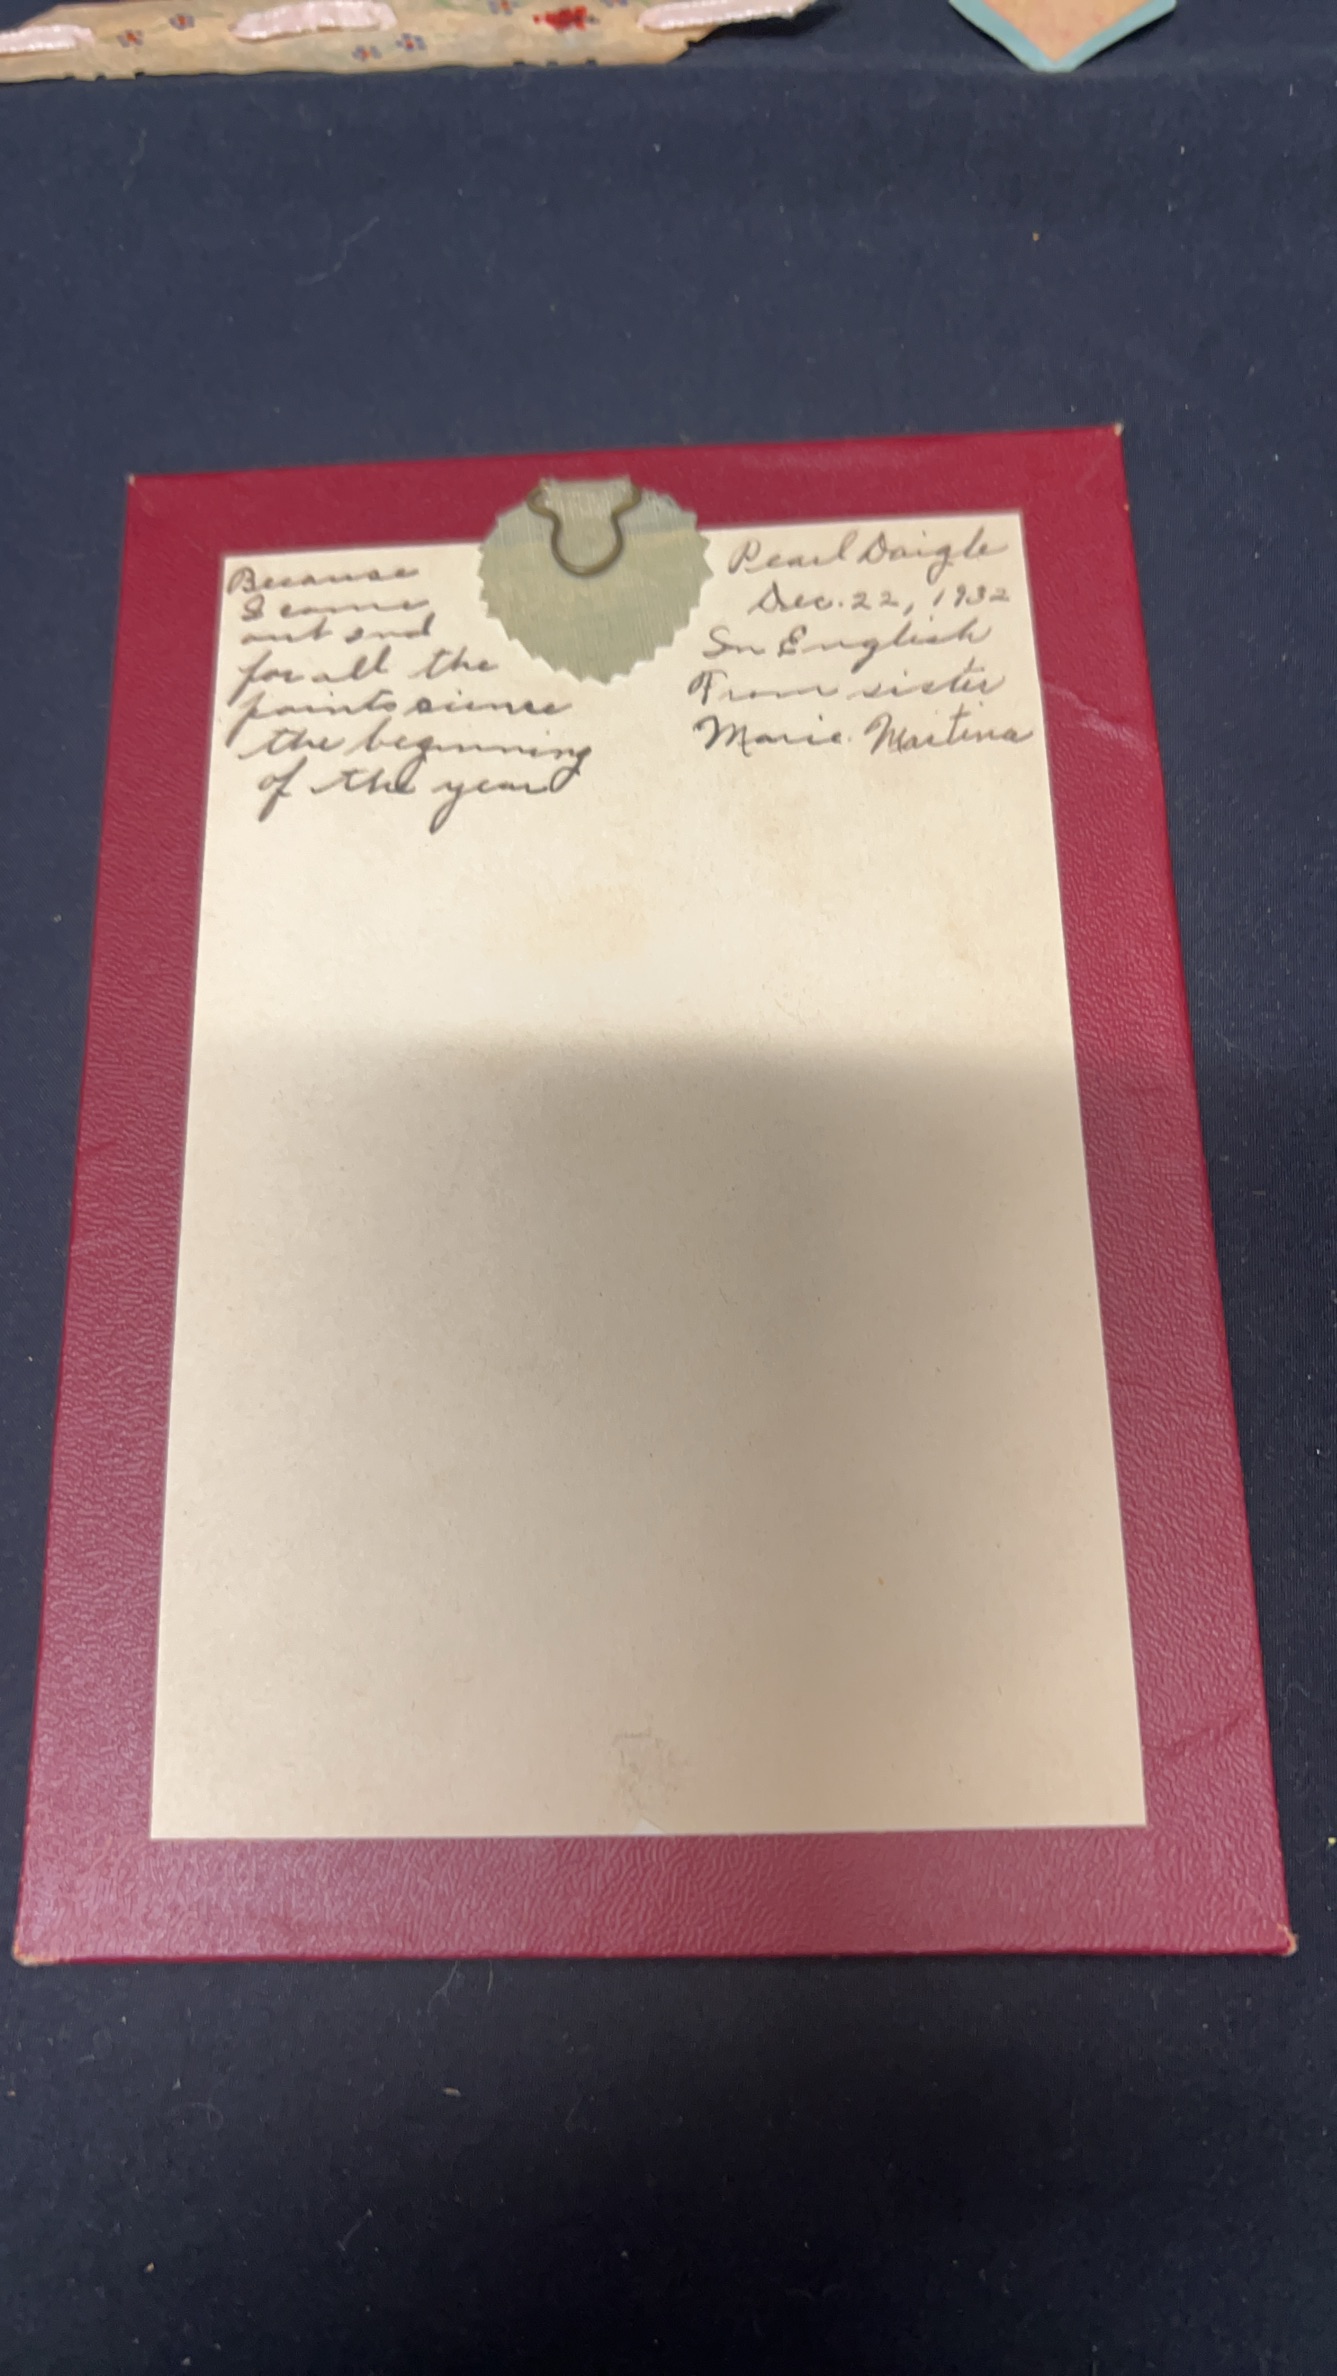 Because
I came
out 2nd
for all the
points sience
the beginning
of the year
Pearl Daigle
Dec. 22, 1932
In English
From sister
Marie Martina